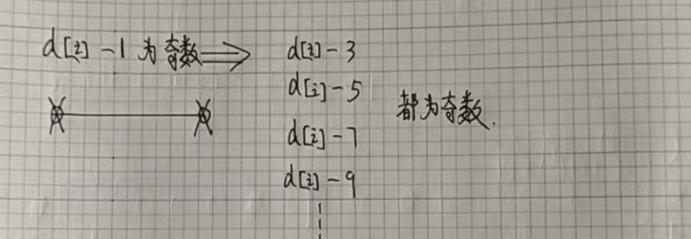 d[i]-1 为奇数 ⟹ d[i]-3
d[i]-5
都为奇数.
d[i]-7
d[i]-9